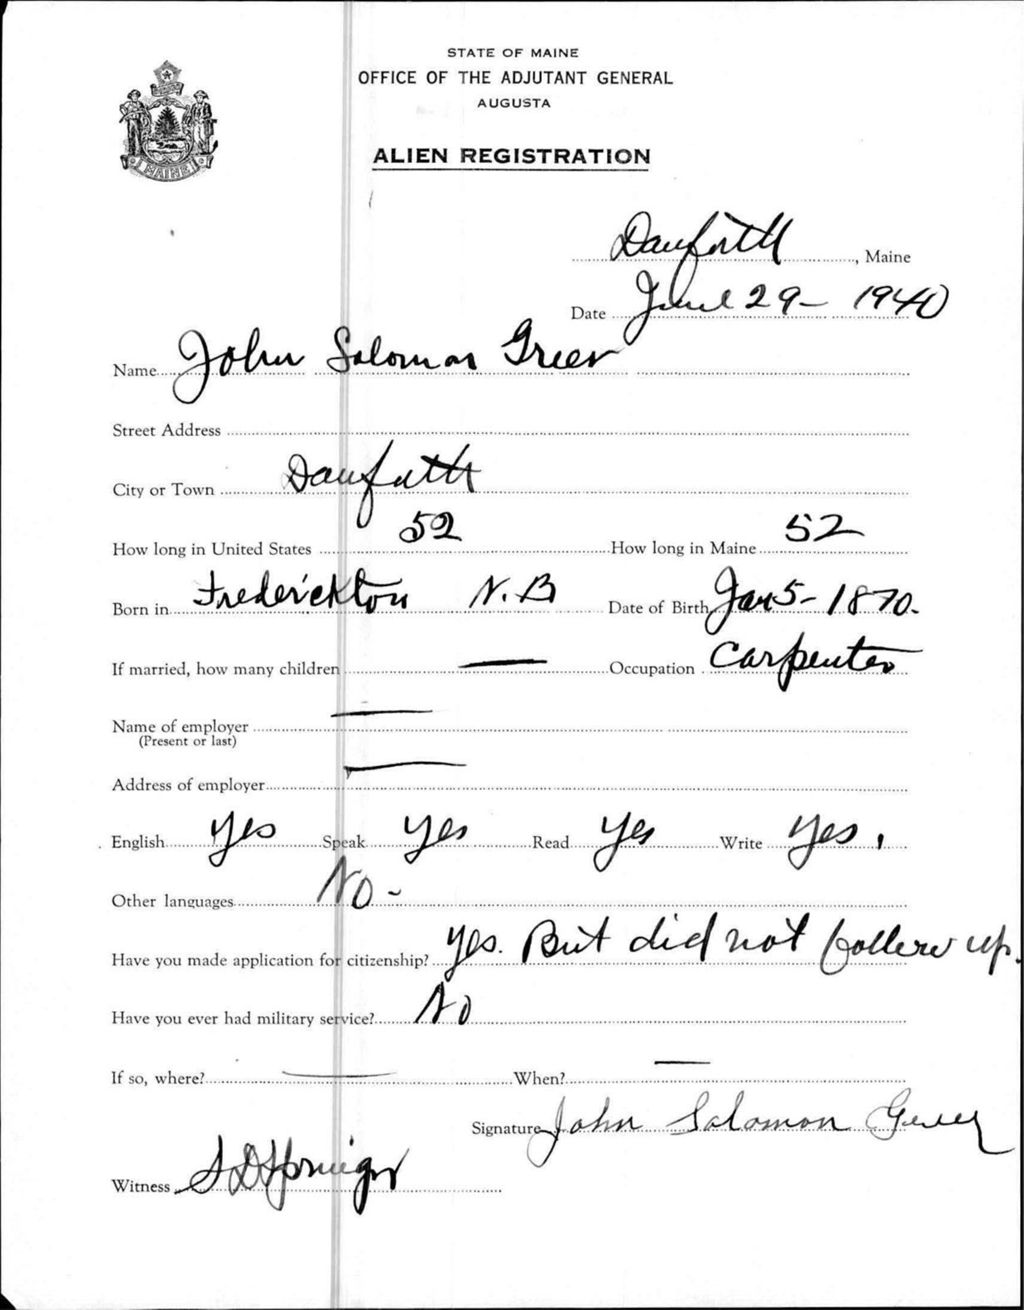 STATE OF MAINE
OFFICE OF THE ADJUTANT GENERAL
AUGUSTA
ALIEN REGISTRATION
MAINE
Danforth, Maine
Date June 29 - 1940
Name John Solomon Greer
Street Address
City or Town Danforth
How long in United States 52 How long in Maine 52
Born in Frederickton N.B Date of Birth Jan 5 - 1870.
If married, how many children — Occupation Carpenter
Name of employer —
(Present or last)
Address of employer —
English yes Speak yes Read yes Write yes.
Other languages No -
Have you made application for citizenship? yes. But did not follow up.
Have you ever had military service? No
If so, where? — When? —
Signature John Solomon Greer
Witness Springer